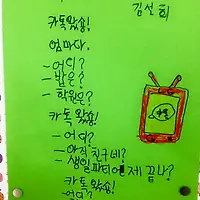 김선희
카톡왔숑!
엄마다.
-어디?
-밥은?
-학원은?
카톡왔숑!
-어디?
-아직 친구네?
-생일파티 언제 끝나?
카톡왔숑!
-어디?